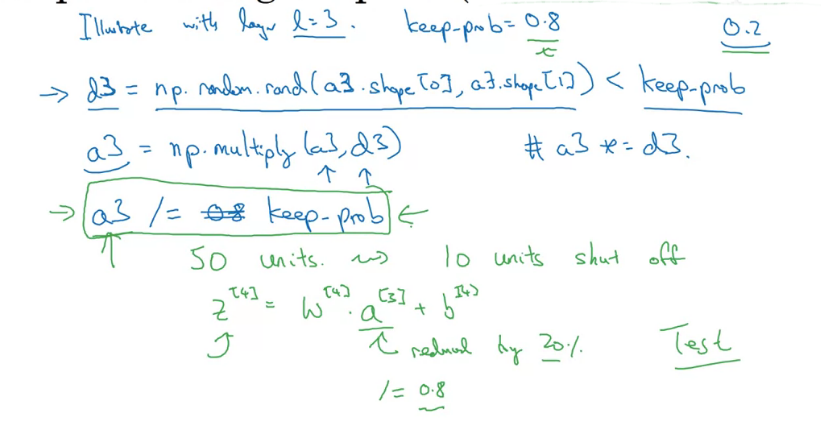 Illustrate with layer l=3. keep-prob = 0.8 0.2
x
→ d3 = np.random.rand(a3.shape[0], a3.shape[1]) < keep-prob
a3 = np.multiply(a3, d3) # a3 *= d3.
→ a3 /= 0.8 keep-prob ←
50 units. ⇝ 10 units shut off
z^[4] = W^[4] · a^[3] + b^[4]
reduced by 20%. Test
/= 0.8